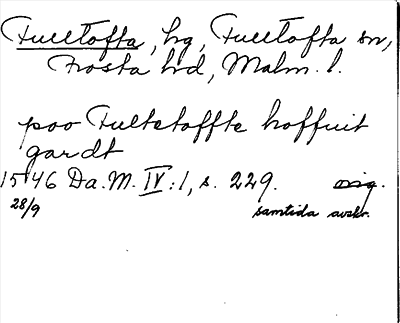 Fulltofta, hg, Fulltofta sn,
Frosta hd, Malm. l.
poo Fulltetoffte hoffuit
gardt
1546 Da. M. IV:1, s. 229. orig.
28/9 samtida avskr.